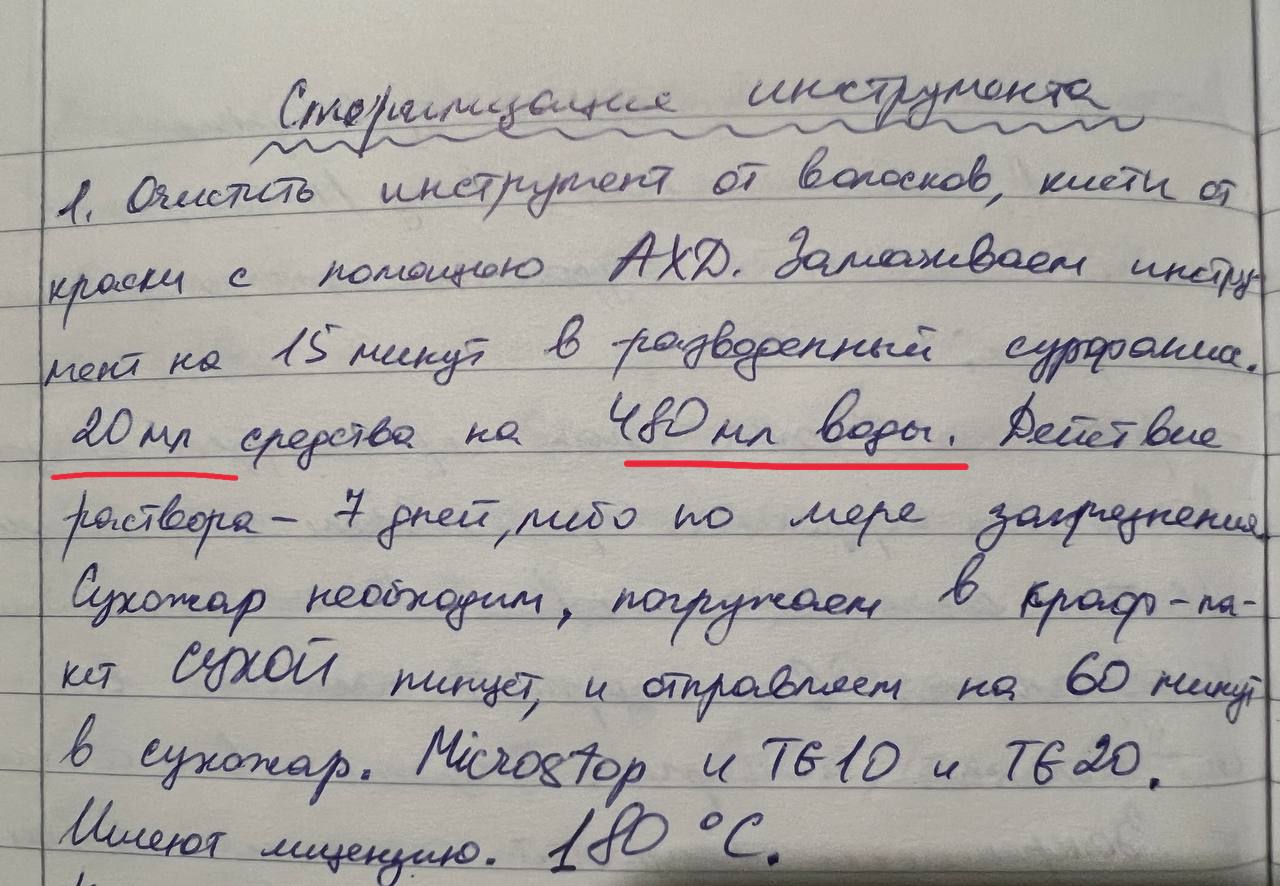 Стерилизация инструмента
1. Очистить инструмент от волосков, кисти от
краски с помощью АХД. Замачиваем инстру-
мент на 15 минут в разведенный сурфаниос.
20 мл средства на 480 мл воды. Действие
раствора – 7 дней, либо по мере загрязнения.
Сухожар необходим, погружаем в краф-па-
кет СУХОЙ пинцет, и отправляем на 60 минут
в сухожар. Microstop и ТЕ10 и ТЕ20.
Имеют лицензию. 180 °С.